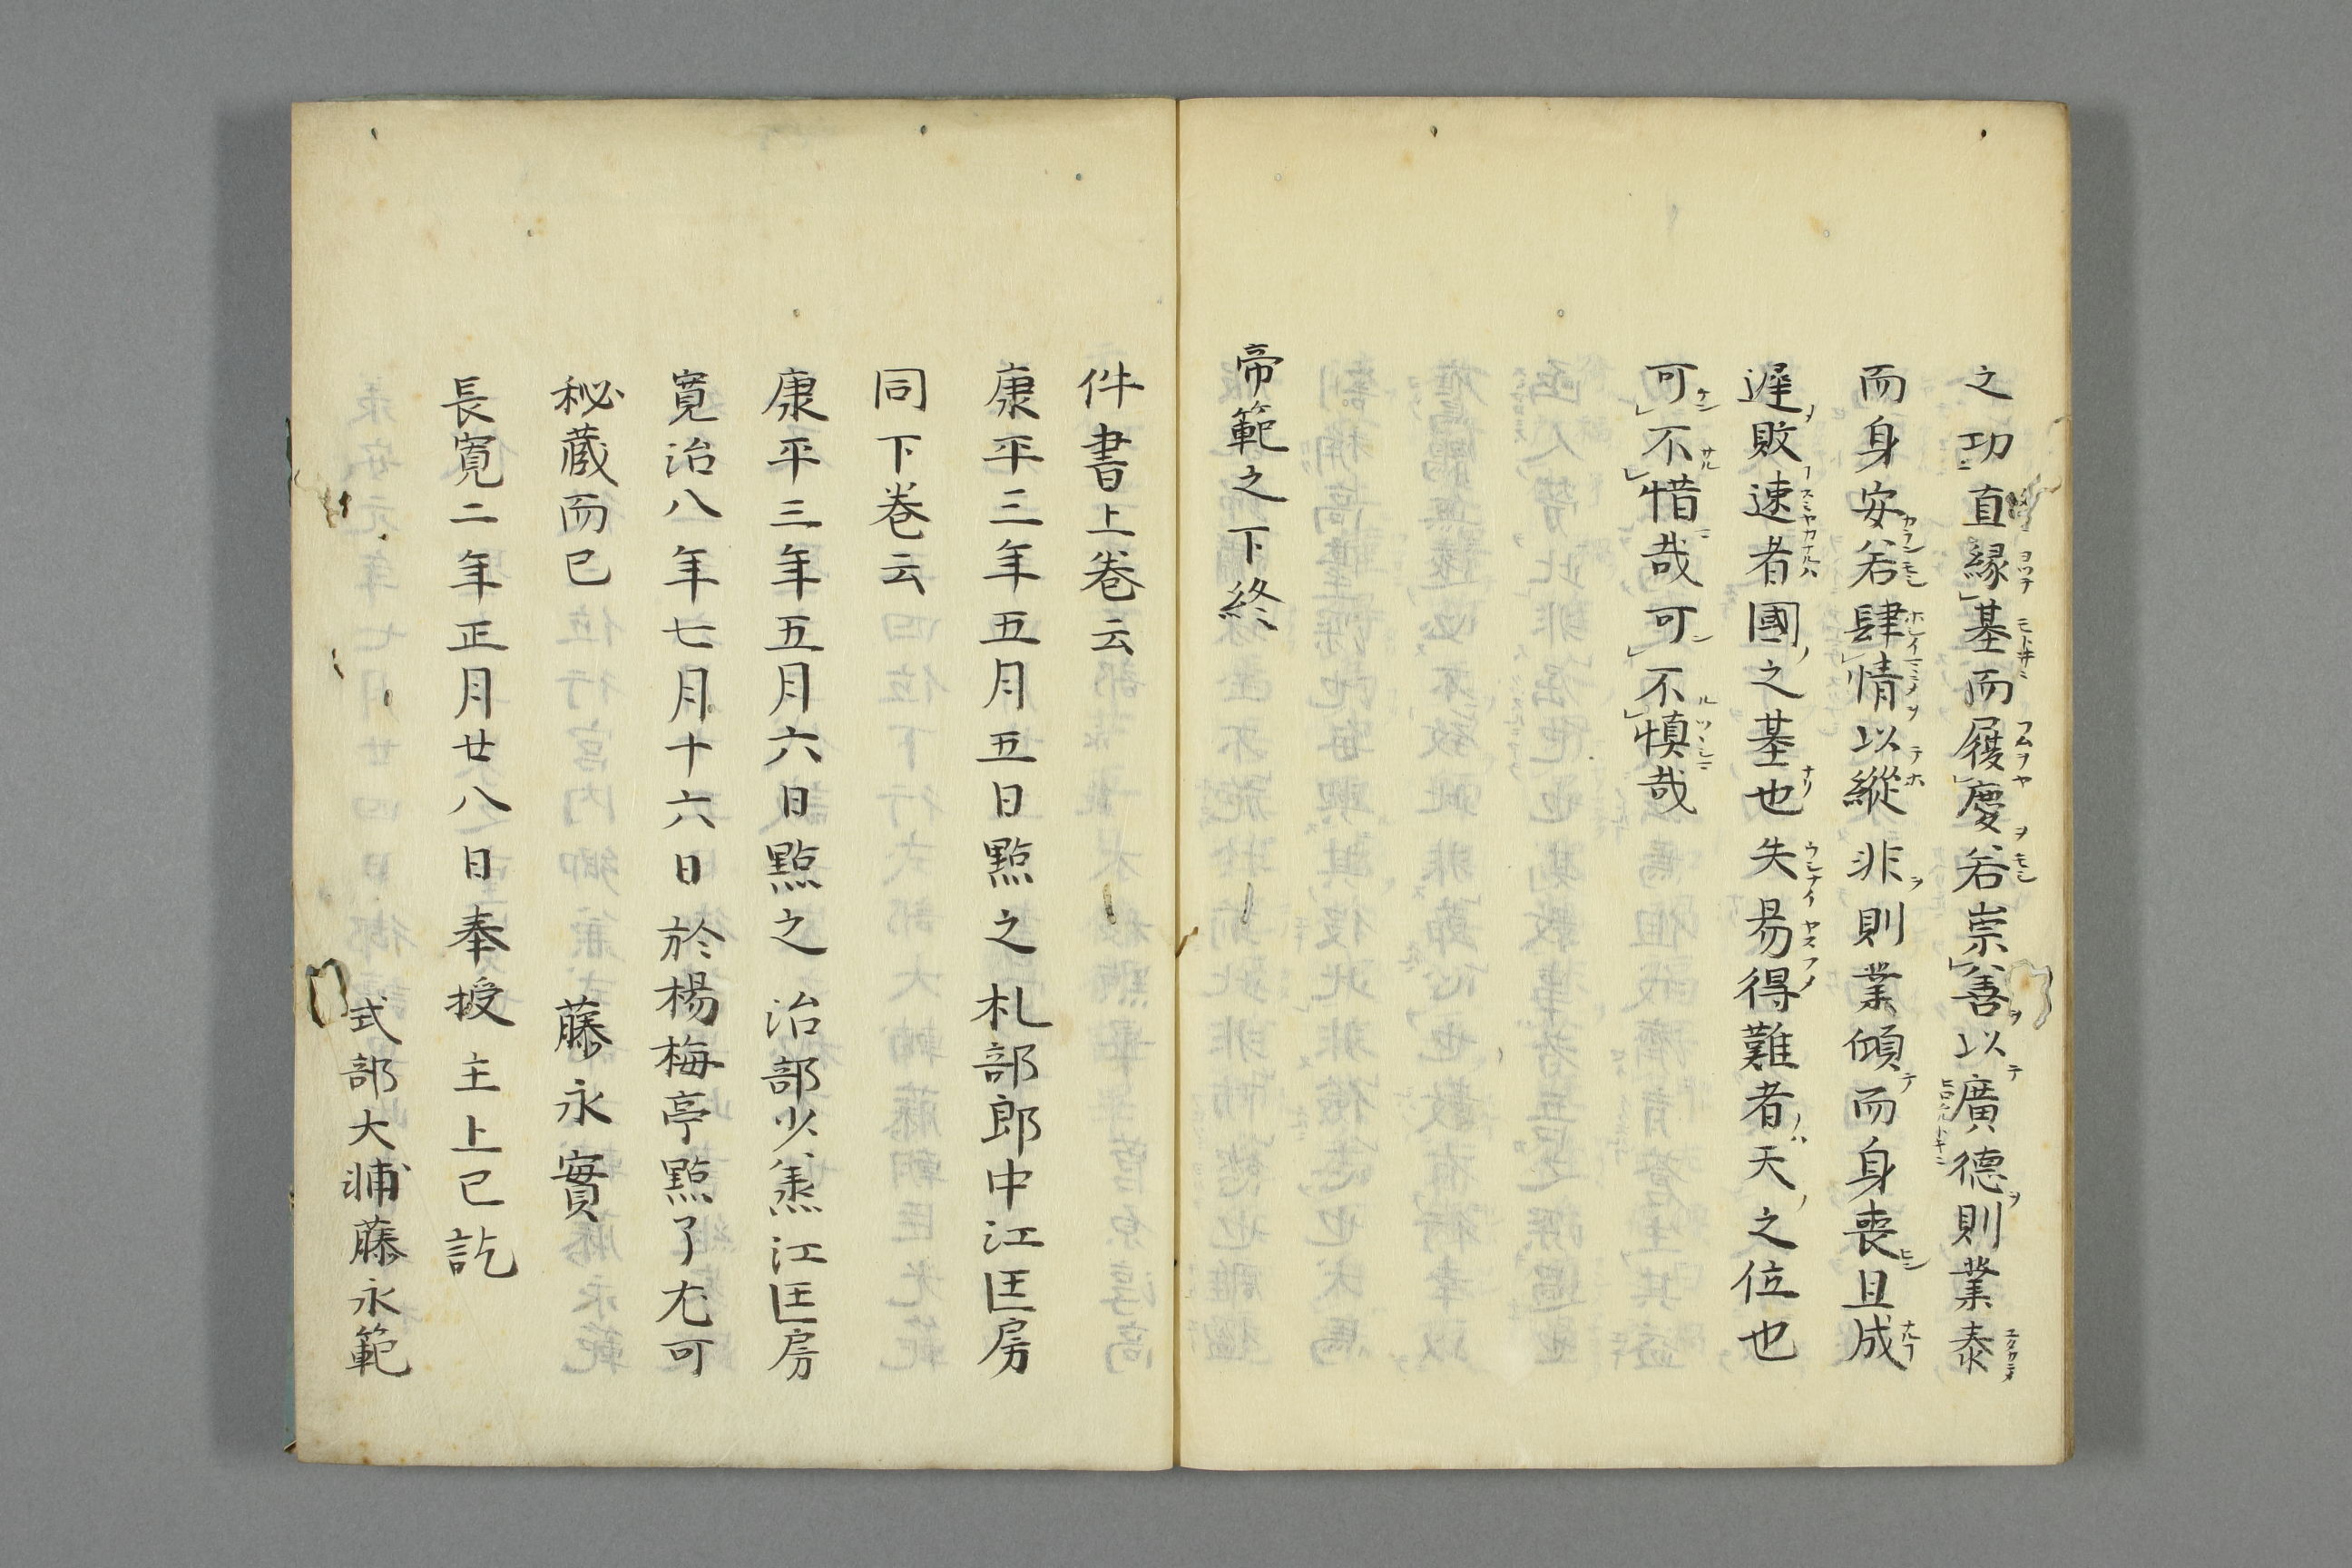 之功直縁基而履慶若崇善以廣德則業泰
而身安若肆情以縱非則業傾而身喪且成
遅敗速者國之基也失易得難者天之位也
可不惜哉可不慎哉
帝範之下終
件書上巻云
康平三年五月五日點之 札部郎中江匡房
同下巻云
康平三年五月六日點之 治部少烝江匡房
寛治八年七月十六日於楊梅亭點了尤可
秘蔵而已 藤永實
長寛二年正月廿八日奉授主上已訖
式部大輔藤永範